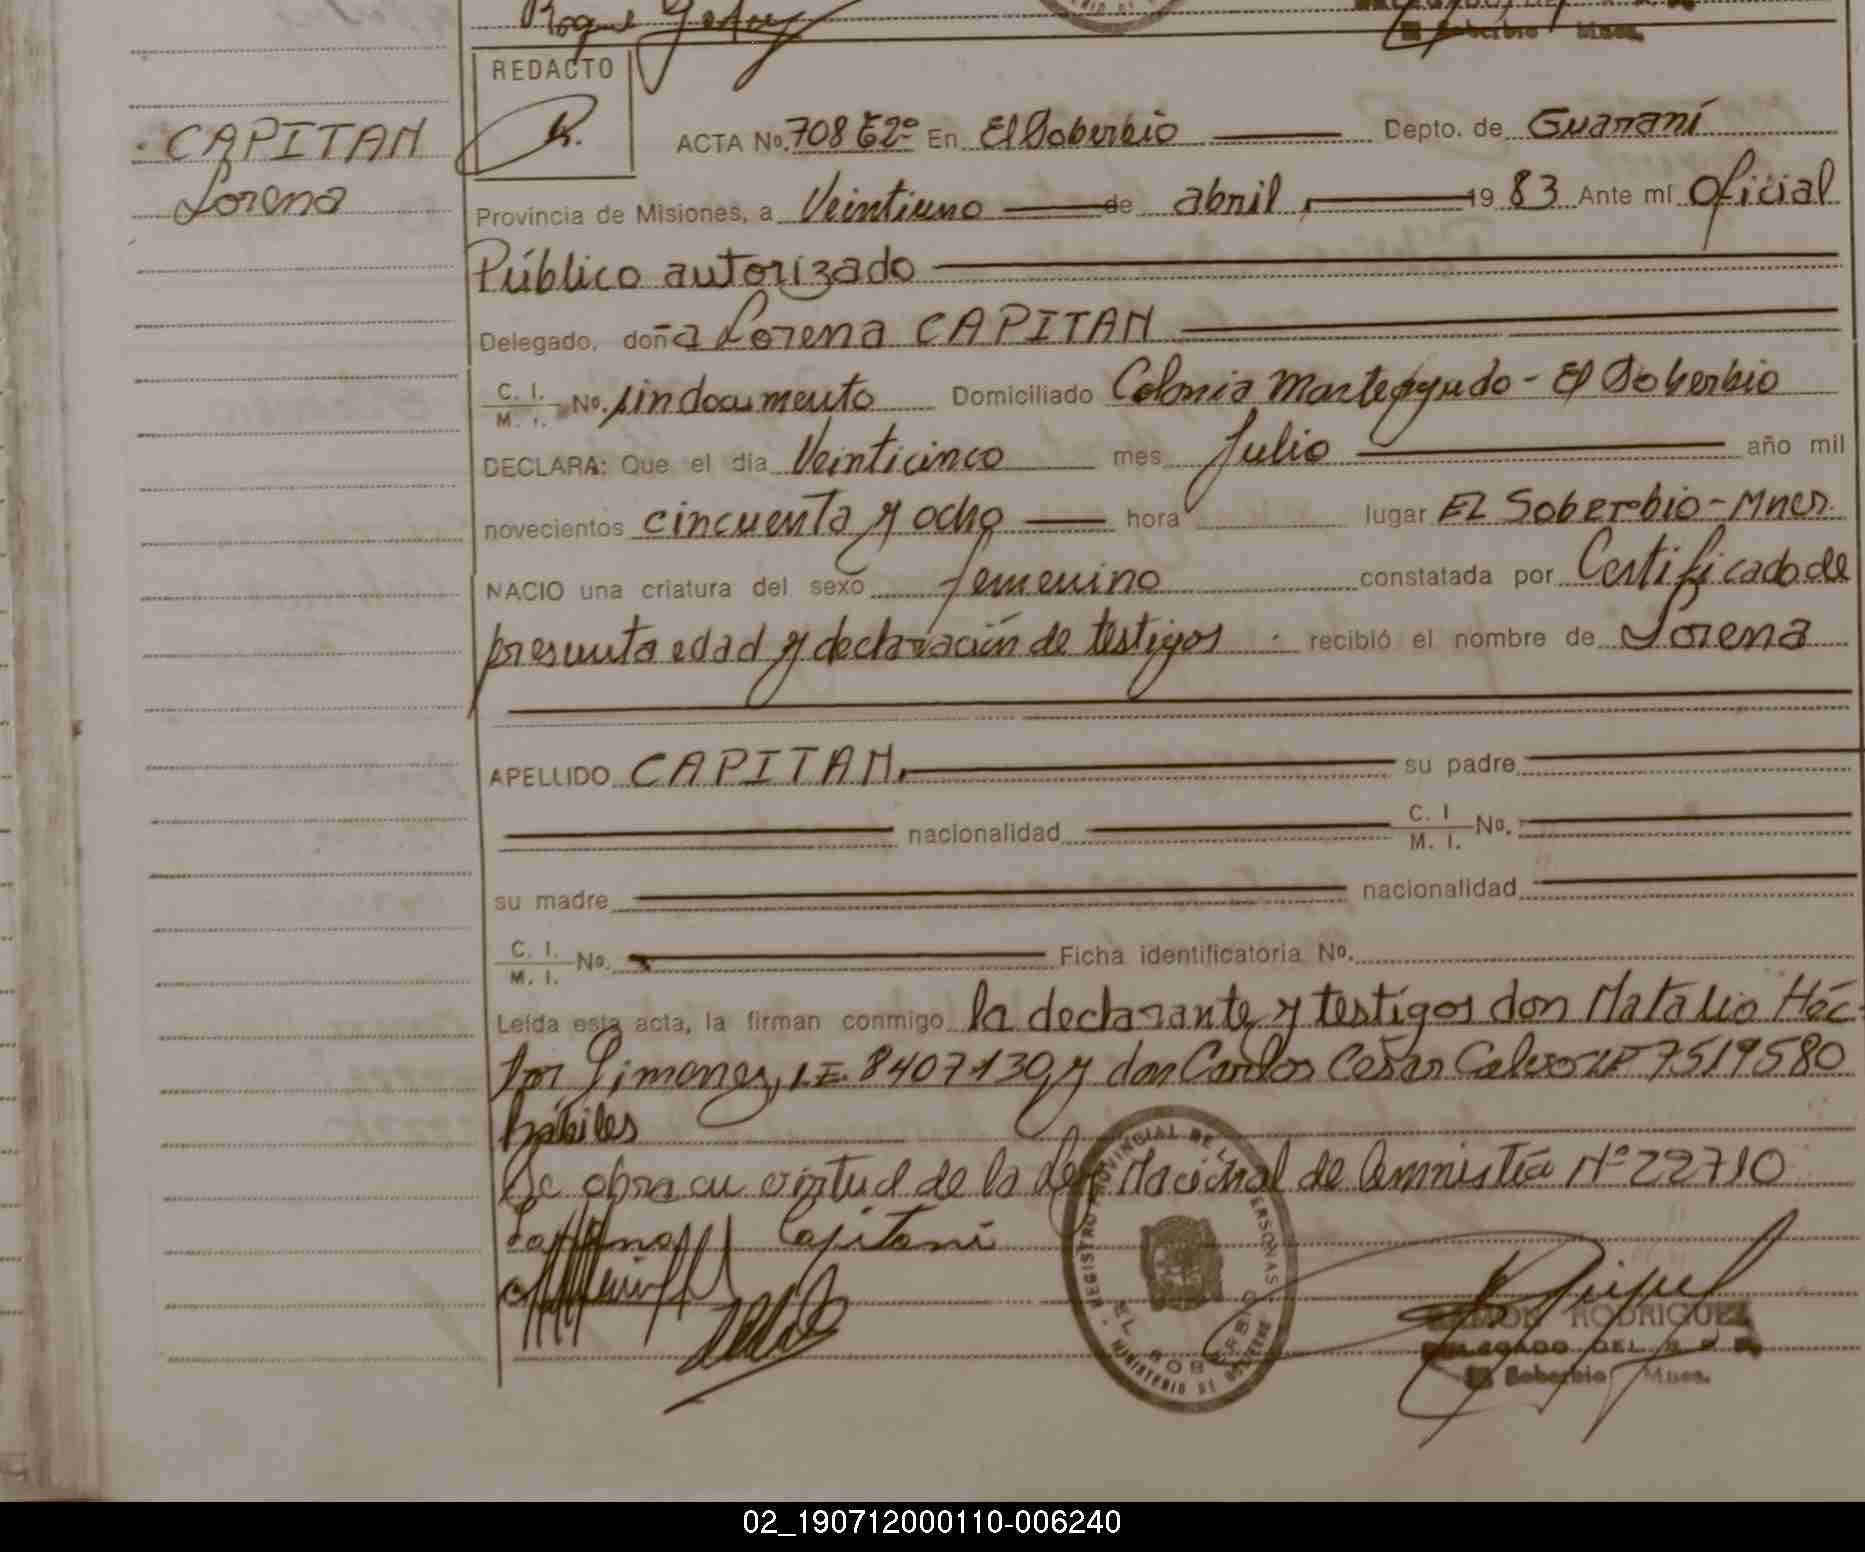 Roque
El Soberbio Mnes.
REDACTO
CAPITAN
Lorena
ACTA No. 708 E2º En El Soberbio Depto. de Guaraní
Provincia de Misiones, a Veintiuno de abril, 1983 Ante mí Oficial
Público autorizado
Delegado, doña Lorena CAPITAN
C. I. M. I. No. sin documento Domiciliado Colonia Monteagudo - El Soberbio
DECLARA: Que el día Veinticinco mes Julio año mil
novecientos cincuenta y ocho hora lugar El Soberbio - Mnes.
NACIO una criatura del sexo femenino constatada por Certificado de
presunta edad y declaración de testigos recibió el nombre de Lorena
APELLIDO CAPITAN su padre
nacionalidad C. I M. I. No.
su madre nacionalidad
C. I. M. I. No. Ficha identificatoria No.
Leída esta acta, la firman conmigo la declarante y testigos don Natalio Héc-
tor Gimenez, L.E. 8407130, y don Carlos César Calvo LE 7519580
hábiles
Se obra en virtud de la Ley Nacional de Amnistía Nº 22710
Capitani
REGISTRO PROVINCIAL DE LAS PERSONAS
EL SOBERBIO
MINISTERIO DE GOBIERNO
RAMON RODRIGUEZ
DELEGADO DEL R P
El Soberbio Mnes.
02_190712000110-006240